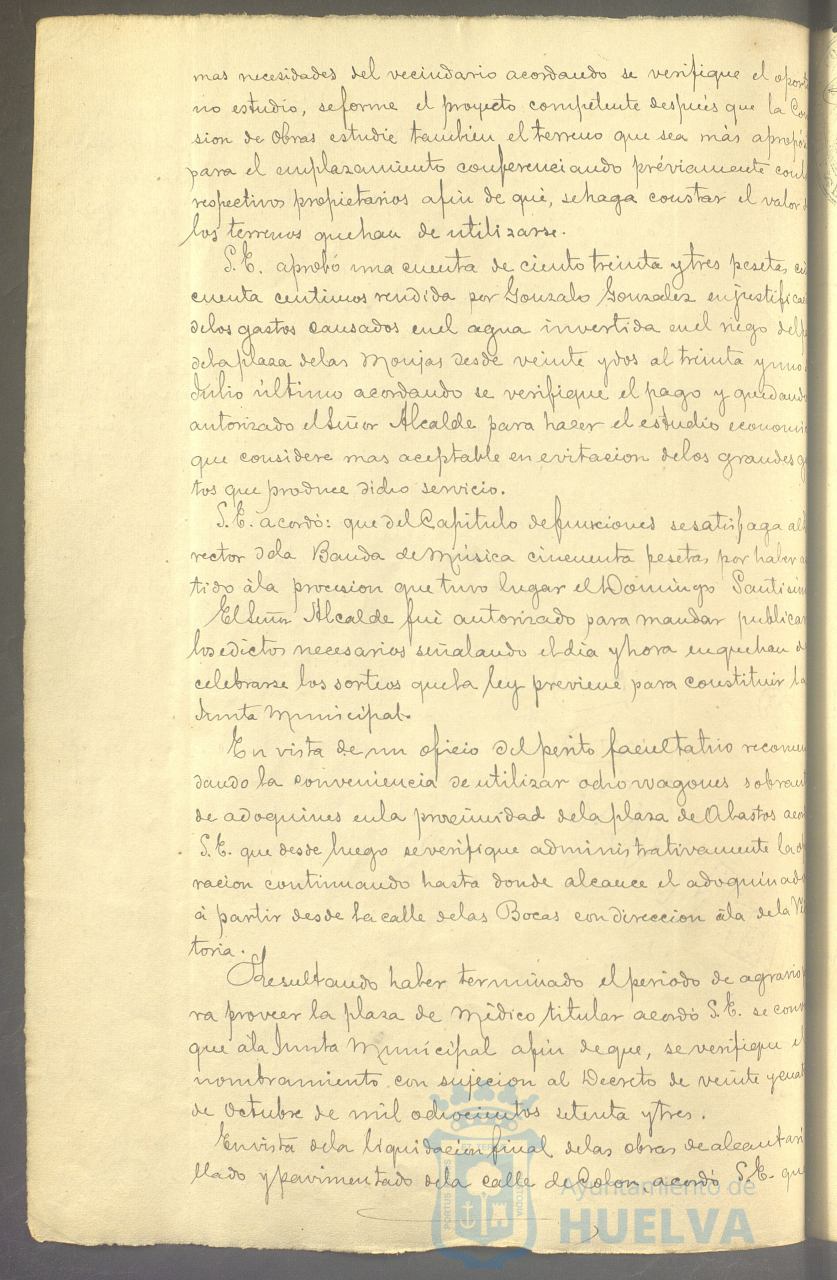 mas necesidades del vecindario acordando se verifique el oport
no estudio, se forme el proyecto competente después que la Co
sion de Obras estudie tambien el terreno que sea más apropó
para el emplazamiento conferenciando préviamente con
respectivos propietarios afin de que, se haga constar el valor
los terrenos que han de utilizarse.
S.E. aprobó una cuenta de ciento treinta y tres pesetas, ci
cuenta centimos rendida por Gonzalo Gonzalez en justifica
de los gastos causados en el agua invertida en el riego del
de la plaza de las Monjas desde veinte y dos al treinta y uno
Julio último acordando se verifique el pago y quedando
autorizado el Señor Alcalde para hacer el estudio economi
que considere mas aceptable en evitacion de los grandes g
tos que produce dicho servicio.
S.E. acordó: que del Capitulo de funciones se satisfaga al
rector de la Banda de Música cincuenta pesetas, por haber a
tido á la procesion que tuvo lugar el Domingo Santisim
El Señor Alcalde fué autorizado para mandar publicar
los edictos necesarios señalando el dia y hora en que han d
celebrarse los sorteos que la ley previene para constituir la
Junta Municipal.
En vista de un oficio del perito facultativo recomen
dando la conveniencia de utilizar ocho wagones sobran
de adoquines en la proximidad de la plaza de Abastos acor
S.E. que desde luego se verifique administrativamente la op
racion continuando hasta donde alcance el adoquinado
á partir desde la calle de las Bocas con direccion á la de la Vi
toria.
Resultando haber terminado el periodo de agravio p
ra proveer la plaza de Médico titular acordó S.E. se conv
que á la Junta Municipal afin de que, se verifique el
nombramiento con sujecion al Decreto de veinte y cuat
de Octubre de mil ochocientos setenta y tres.
En vista de la liquidacion final de las obras de alcantari
llado y pavimentado de la calle de Colon, acordó S.E. que
Ayuntamiento de
HUELVA